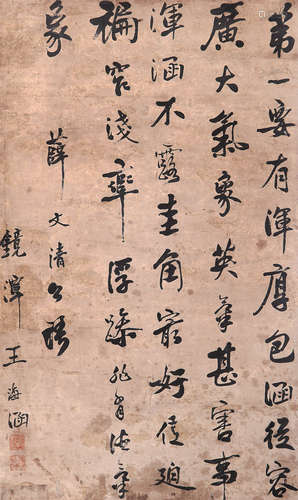 第一要有渾厚包涵從容
廣大氣象英氣甚害事
渾涵不露圭角最好促迫
褊窄淺率浮躁非有德氣
象
薛文清公語
鏡 王海涵